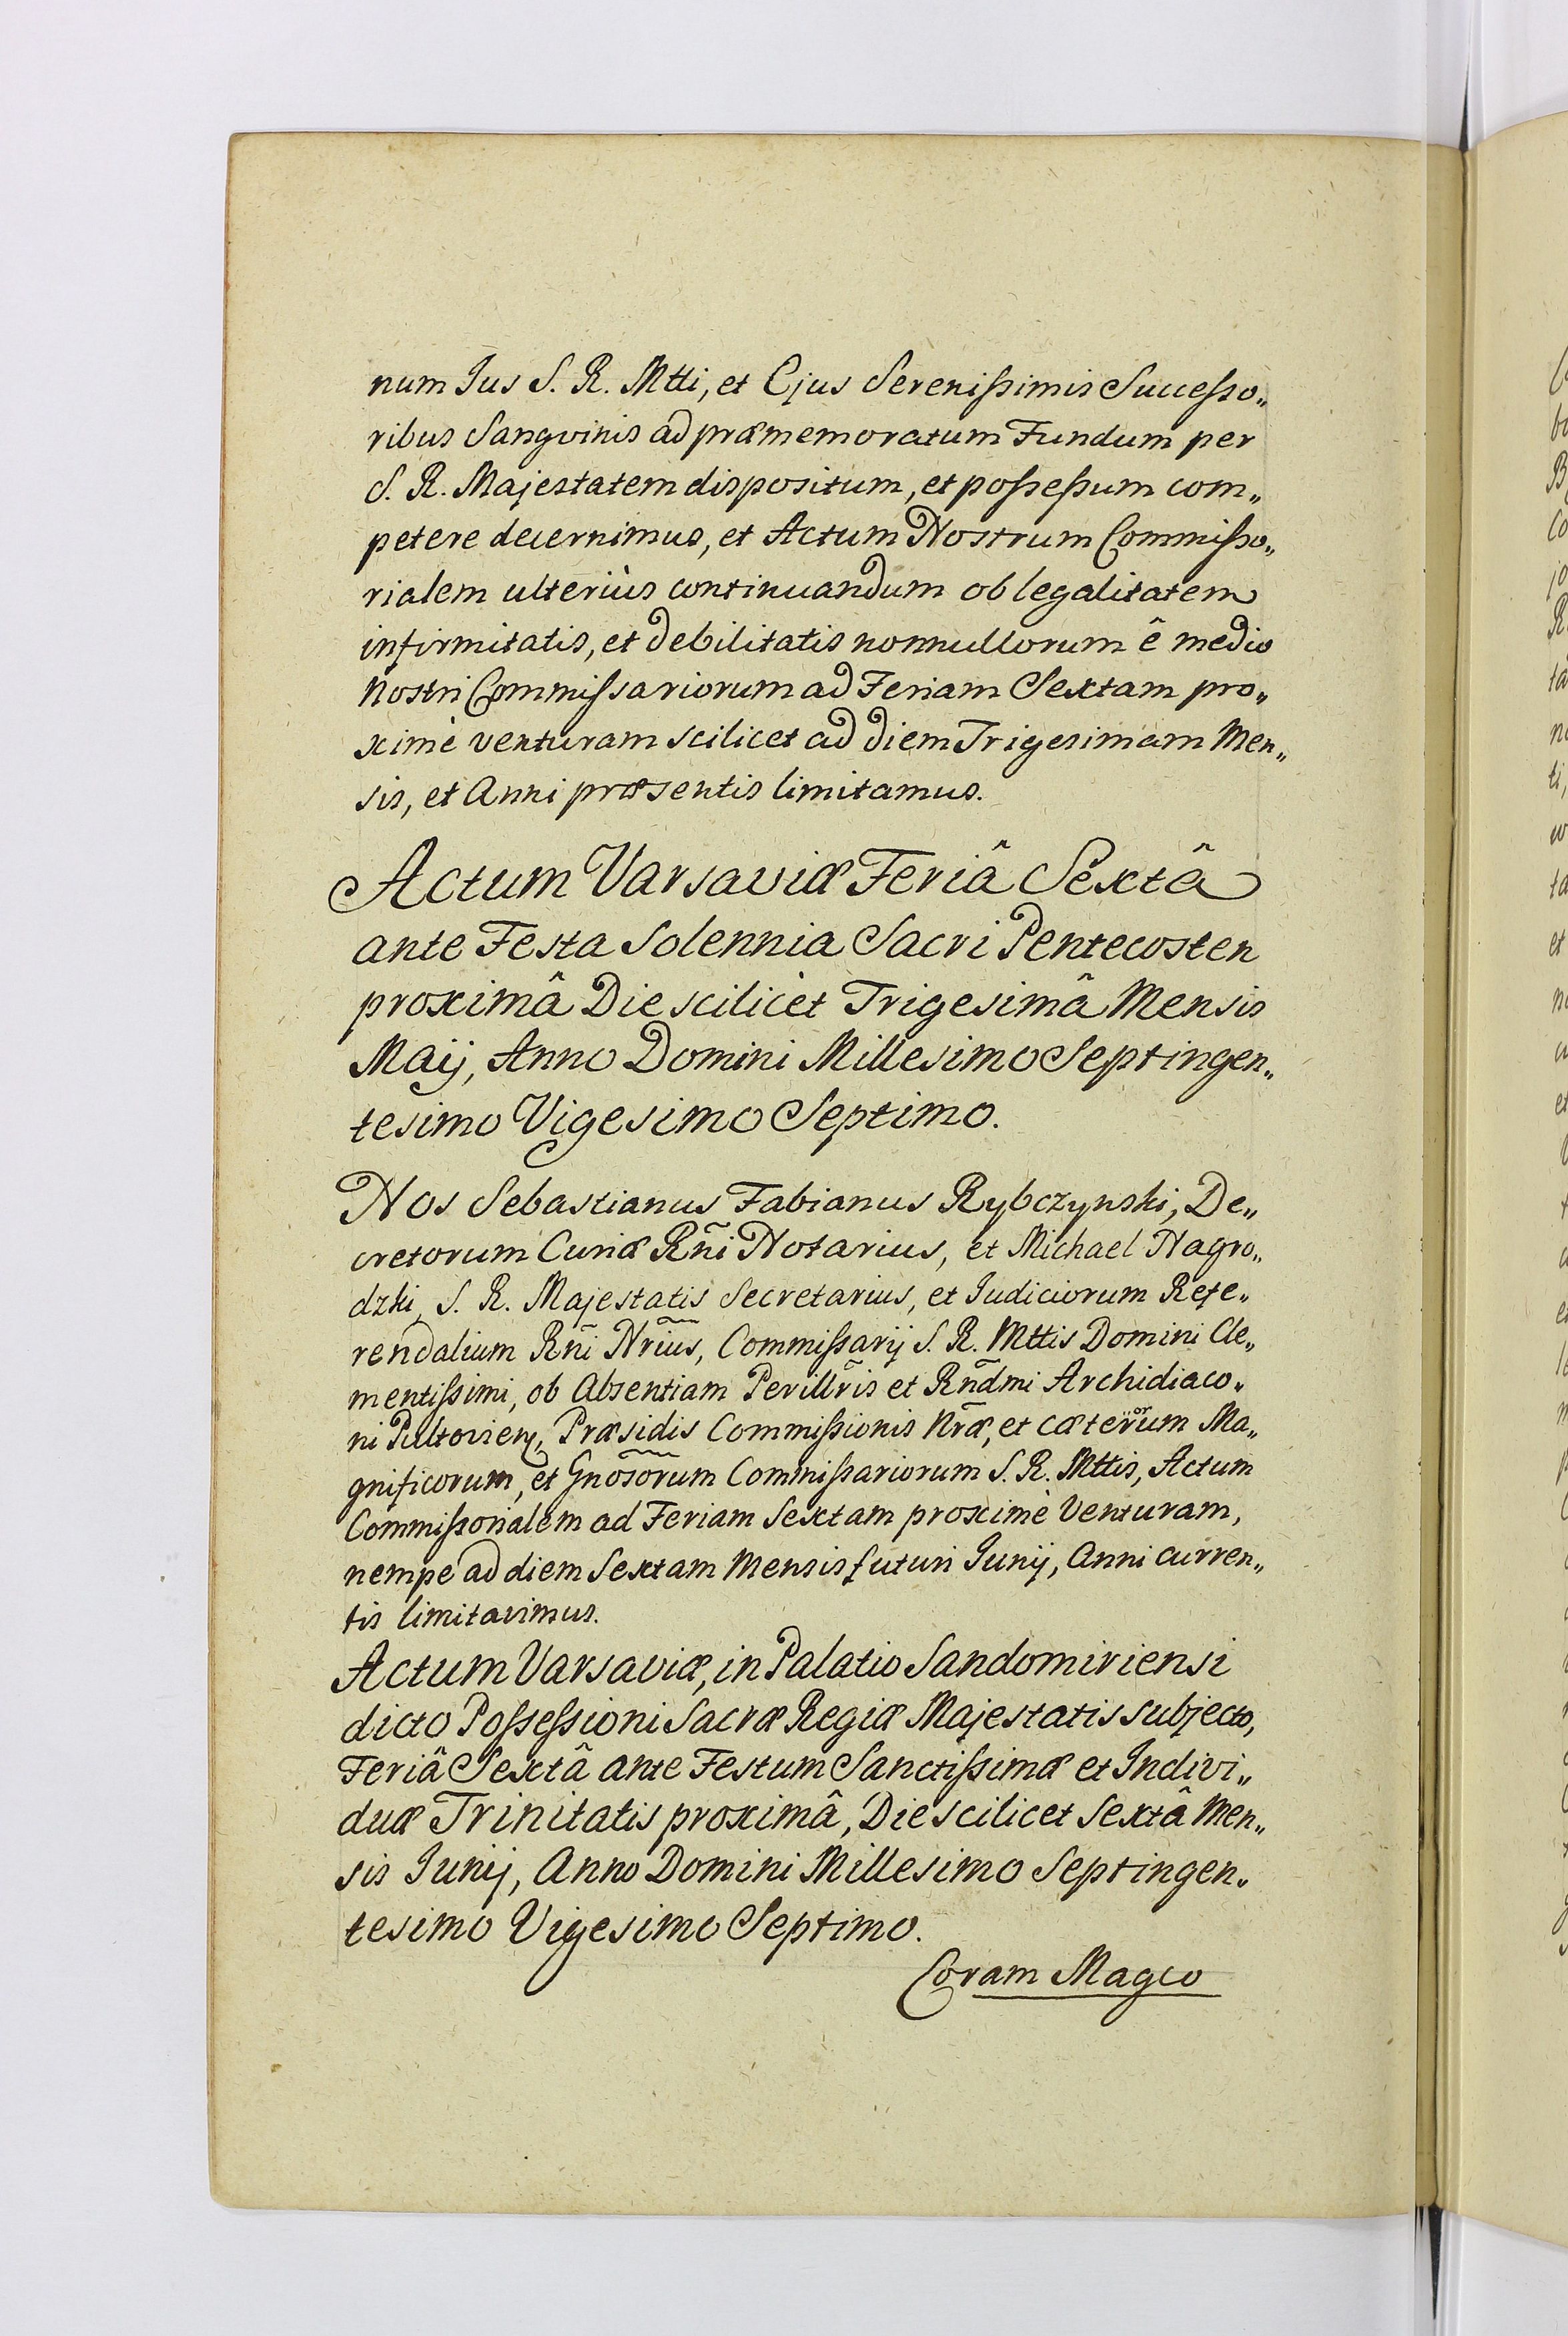 num Jus S. R. Mtti, et Ejus Serenissimis Successo„
ribus Sangvinis ad præmemoratum Fundum per
S. R. Majestatem dispositum, et possessum com„
petere decernimus, et Actum Nostrum Commisso„
rialem ulteriùs continuandum ob legalitatem
infirmitatis, et debilitatis nonnullorum ê medio
Nostri Commissariorum ad Feriam Sextam pro„
ximè venturam scilicet ad diem Trigesimam Men„
sis, et Anni præsentis limitamus.
Actum Varsaviæ Feriâ Sextâ
ante Festa Solennia Sacri Pentecosten
proximâ Die scilicèt Trigesimâ Mensis
Maij, Anno Domini Millesimo Septingen„
tesimo Vigesimo Septimo.
Nos Sebastianus Fabianus Rybczynski, De„
cretorum Curiæ Rñi Notarius, et Michael Nagro„
dzki, S. R. Majestatis Secretarius, et Judiciorum Refe„
rendalium Rñi Nrius, Commissarij S. R. Mttis Domini Cle„
mentissimi, ob Absentiam Perillris et Rndmi Archidiaco„
ni Pultovien, Præsidis Commissionis Nræ, et cæterorum Ma„
gnificorum, et Gnosorum Commissariorum S. R. Mttis, Actum
Commissorialem ad Feriam Sextam proximè Venturam,
nempe ad diem Sextam Mensis futuri Junij, Anni curren„
tis limitavimus.
Actum Varsaviæ, in Palatio Sandomiriensi
dicto Possessioni Sacræ Regiæ Majestatis subjecto,
Feriâ Sextâ ante Festum Sanctissimæ et Indivi„
duæ Trinitatis proximâ, Die scilicet Sextâ Men„
sis Junij, Anno Domini Millesimo Septingen„
tesimo Vigesimo Septimo.
Coram Magco